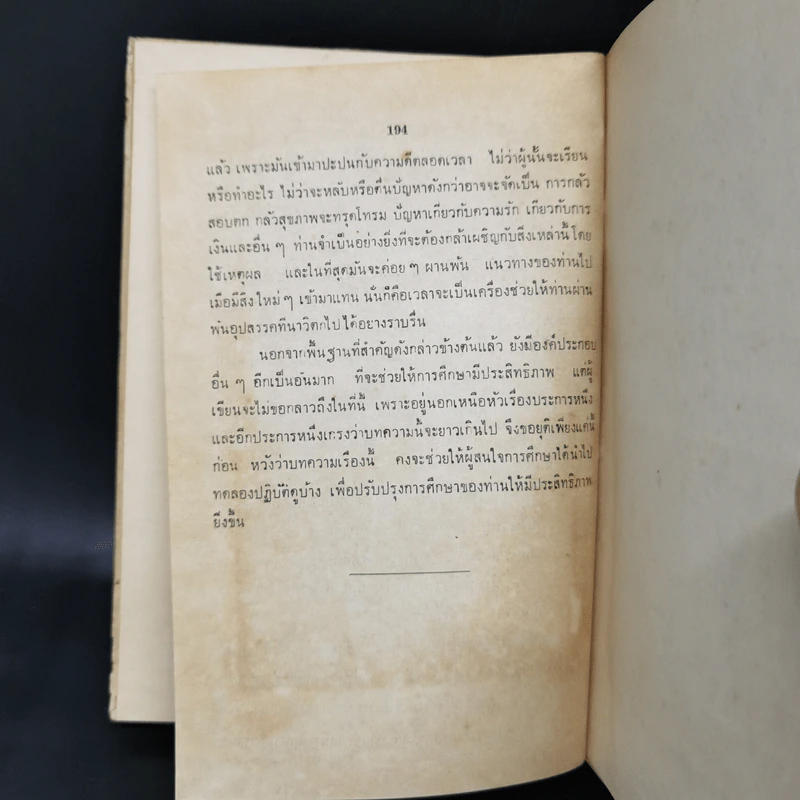 194
แล้ว เพราะมันเข้ามาปะปนกับความคิดตลอดเวลา ไม่ว่าผู้นั้นจะเรียน
หรือทำอะไร ไม่ว่าจะหลับหรือตื่นปัญหาดังกล่าวอาจจะจัดเป็น การกลัว
สอบตก กลัวสุขภาพจะทรุดโทรม ปัญหาเกี่ยวกับความรัก เกี่ยวกับการ
เงินและอื่น ๆ ท่านจำเป็นอย่างยิ่งที่จะต้องกล้าเผชิญกับสิ่งเหล่านี้โดย
ใช้เหตุผล และในที่สุดมันจะค่อย ๆ ผ่านพ้น แนวทางของท่านไป
เมื่อมีสิ่งใหม่ ๆ เข้ามาแทน นั่นก็คือเวลาจะเป็นเครื่องช่วยให้ท่านผ่าน
พ้นอุปสรรคที่น่าวิตกไปได้อย่างราบรื่น
นอกจากพื้นฐานที่สำคัญดังกล่าวข้างต้นแล้ว ยังมีองค์ประกอบ
อื่น ๆ อีกเป็นอันมาก ที่จะช่วยให้การศึกษามีประสิทธิภาพ แต่ผู้
เขียนจะไม่ขอกล่าวถึงในที่นี้ เพราะอยู่นอกเหนือหัวเรื่องประการหนึ่ง
และอีกประการหนึ่งเกรงว่าบทความนี้จะยาวเกินไป จึงขอยุติเพียงแค่นี้
ก่อน หวังว่าบทความเรื่องนี้ คงจะช่วยให้ผู้สนใจการศึกษาได้นำไป
ทดลองปฏิบัติดูบ้าง เพื่อปรับปรุงการศึกษาของท่านให้มีประสิทธิภาพ
ยิ่งขึ้น